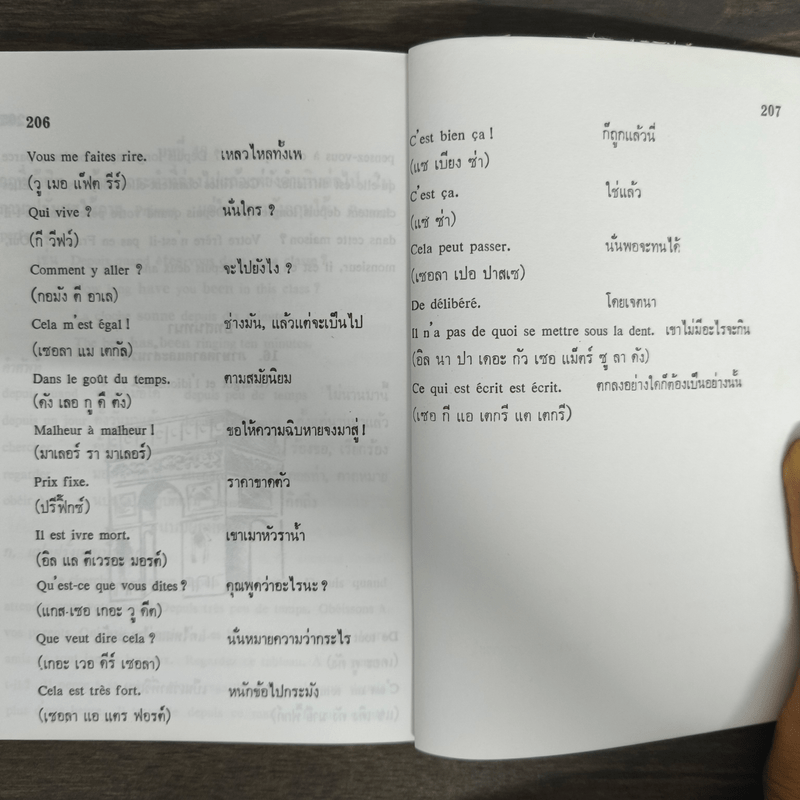 206
Vous me faites rire. เหลวไหลทั้งเพ
(วู เมอ แฟ็ต รีร์)
Qui vive ? นั่นใคร ?
(กี วีฟว์)
Comment y aller ? จะไปยังไง ?
(กอมัง ตี อาเล)
Cela m'est égal ! ช่างมัน, แล้วแต่จะเป็นไป
(เซอลา แม เตกัล)
Dans le goût du temps. ตามสมัยนิยม
(ดัง เลอ กู ดี ตัง)
Malheur à malheur ! ขอให้ความฉิบหายจงมาสู่ !
(มาเลอร์ รา มาเลอร์)
Prix fixe. ราคาขาดตัว
(ปรีฟิ๊กซ์)
Il est ivre mort. เขาเมาหัวราน้ำ
(อิล แล ตีเวรอะ มอรต์)
Qu'est-ce que vous dites ? คุณพูดว่าอะไรนะ ?
(แกส-เซอ เกอะ วู ดีต)
Que veut dire cela ? นั่นหมายความว่ากระไร
(เกอะ เวอ ดีร์ เซอลา)
Cela est très fort. หนักข้อไปกระมัง
(เซอลา แอ แตร ฟอรต์)
207
C'est bien ça ! ก็ถูกแล้วนี่
(แซ เบียง ซ่า)
C'est ça. ใช่แล้ว
(แซ ซ่า)
Cela peut passer. นั่นพอจะทนได้
(เซอลา เปอ ปาสเซ)
De délibéré. โดยเจตนา
Il n'a pas de quoi se mettre sous la dent. เขาไม่มีอะไรจะกิน
(อิล นา ปา เดอะ กัว เซอ แม็ตร์ ซู ลา ดัง)
Ce qui est écrit est écrit. ตกลงอย่างใดก็ต้องเป็นอย่างนั้น
(เซอ กี แอ เตกรี แต เตกรี)